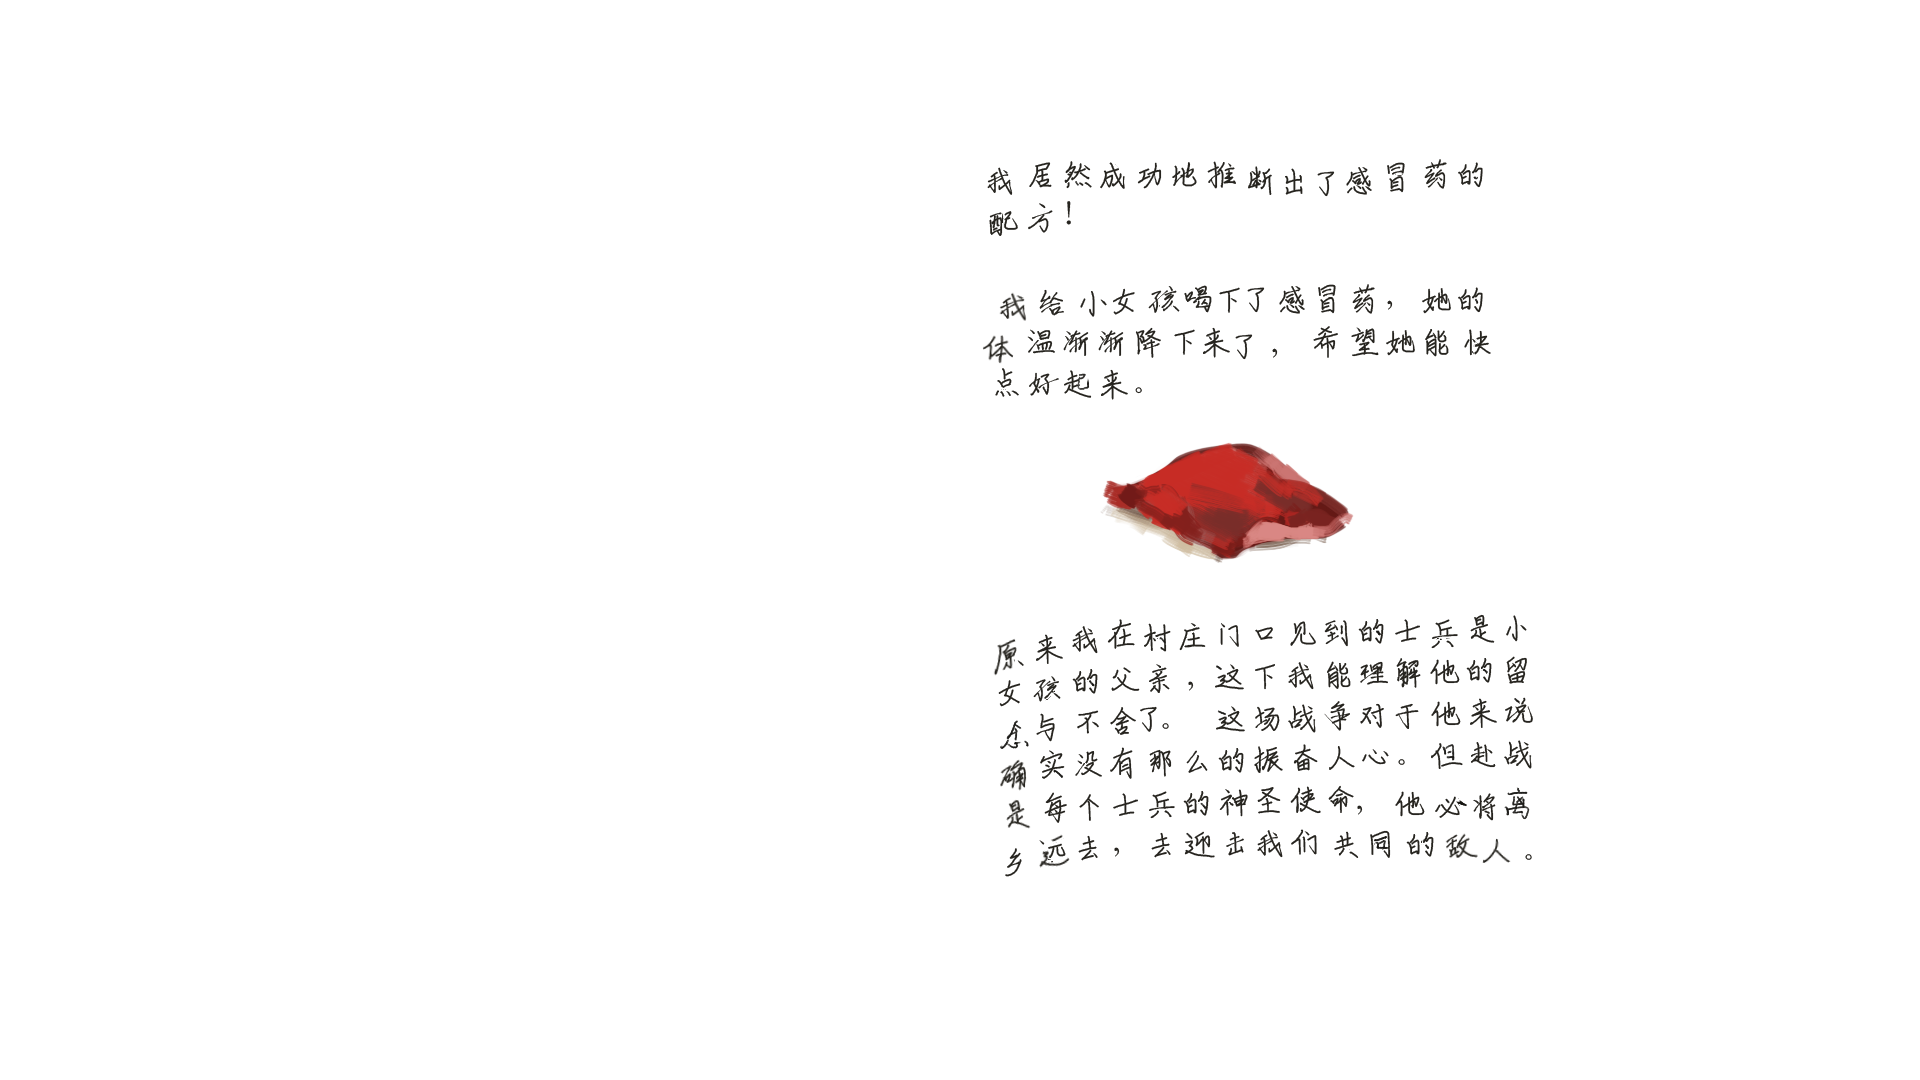 我居然成功地推断出了感冒药的
配方！
我给小女孩喝下了感冒药，她的
体温渐渐降下来了，希望她能快
点好起来。
原来我在村庄门口见到的士兵是小
女孩的父亲，这下我能理解他的留
恋与不舍了。这场战争对于他来说
确实没有那么的振奋人心。但赴战
是每个士兵的神圣使命，他必将离
乡远去，去迎击我们共同的敌人。